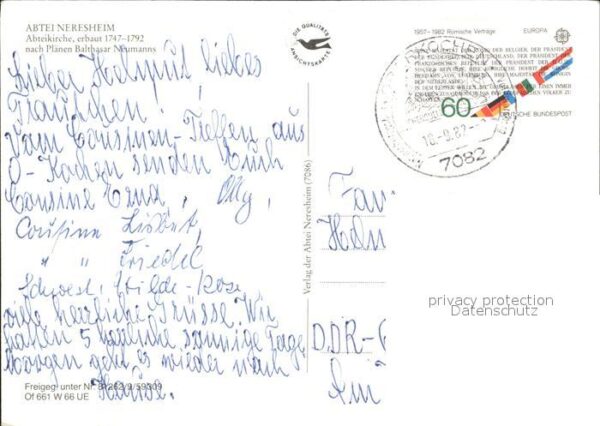 ABTEI NERESHEIM
Abteikirche, erbaut 1747–1792
nach Plänen Balthasar Neumanns
DIE QUALITÄTS
ANSICHTSKARTE
1957–1982 Römische Verträge
EUROPA
60
DEUTSCHE BUNDESPOST
7082
Lieber Helmut, liebes
Traudchen!
Vom Cousinen-Treffen aus
O-Kochen senden Euch
Cousine Erna, Olly,
Cousine Lisbet,
" " Friedel
Schwest. Hilde-Rose
viele herzliche Grüsse. Wir
haben 5 herrliche sonnige Tage
morgen geht es wieder nach
Hause.
Verlag der Abtei Neresheim (7086)
Fam
Helm
DDR-
privacy protection
Datenschutz
Freigeg. unter Nr.
Of 661 W 66 UE